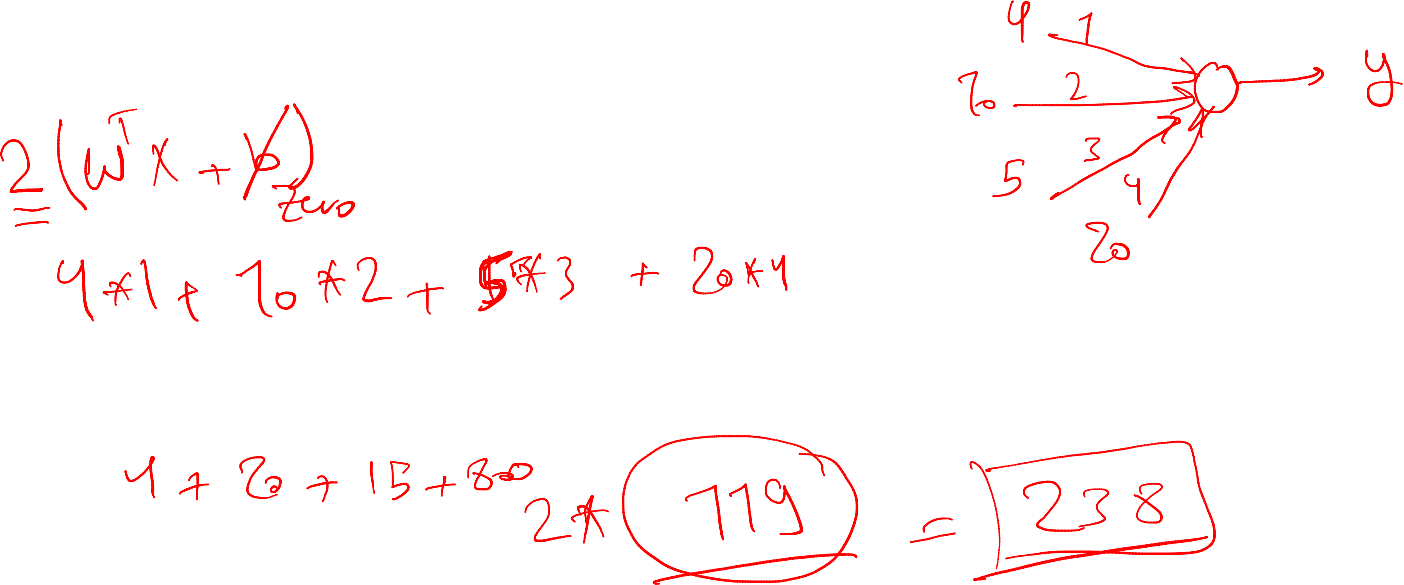 4 1
10 2 y
5 3
20 4
2 (wᵀx + b)
zero
4*1 + 10*2 + 5*3 + 20*4
4 + 20 + 15 + 80
2* 119 = 238